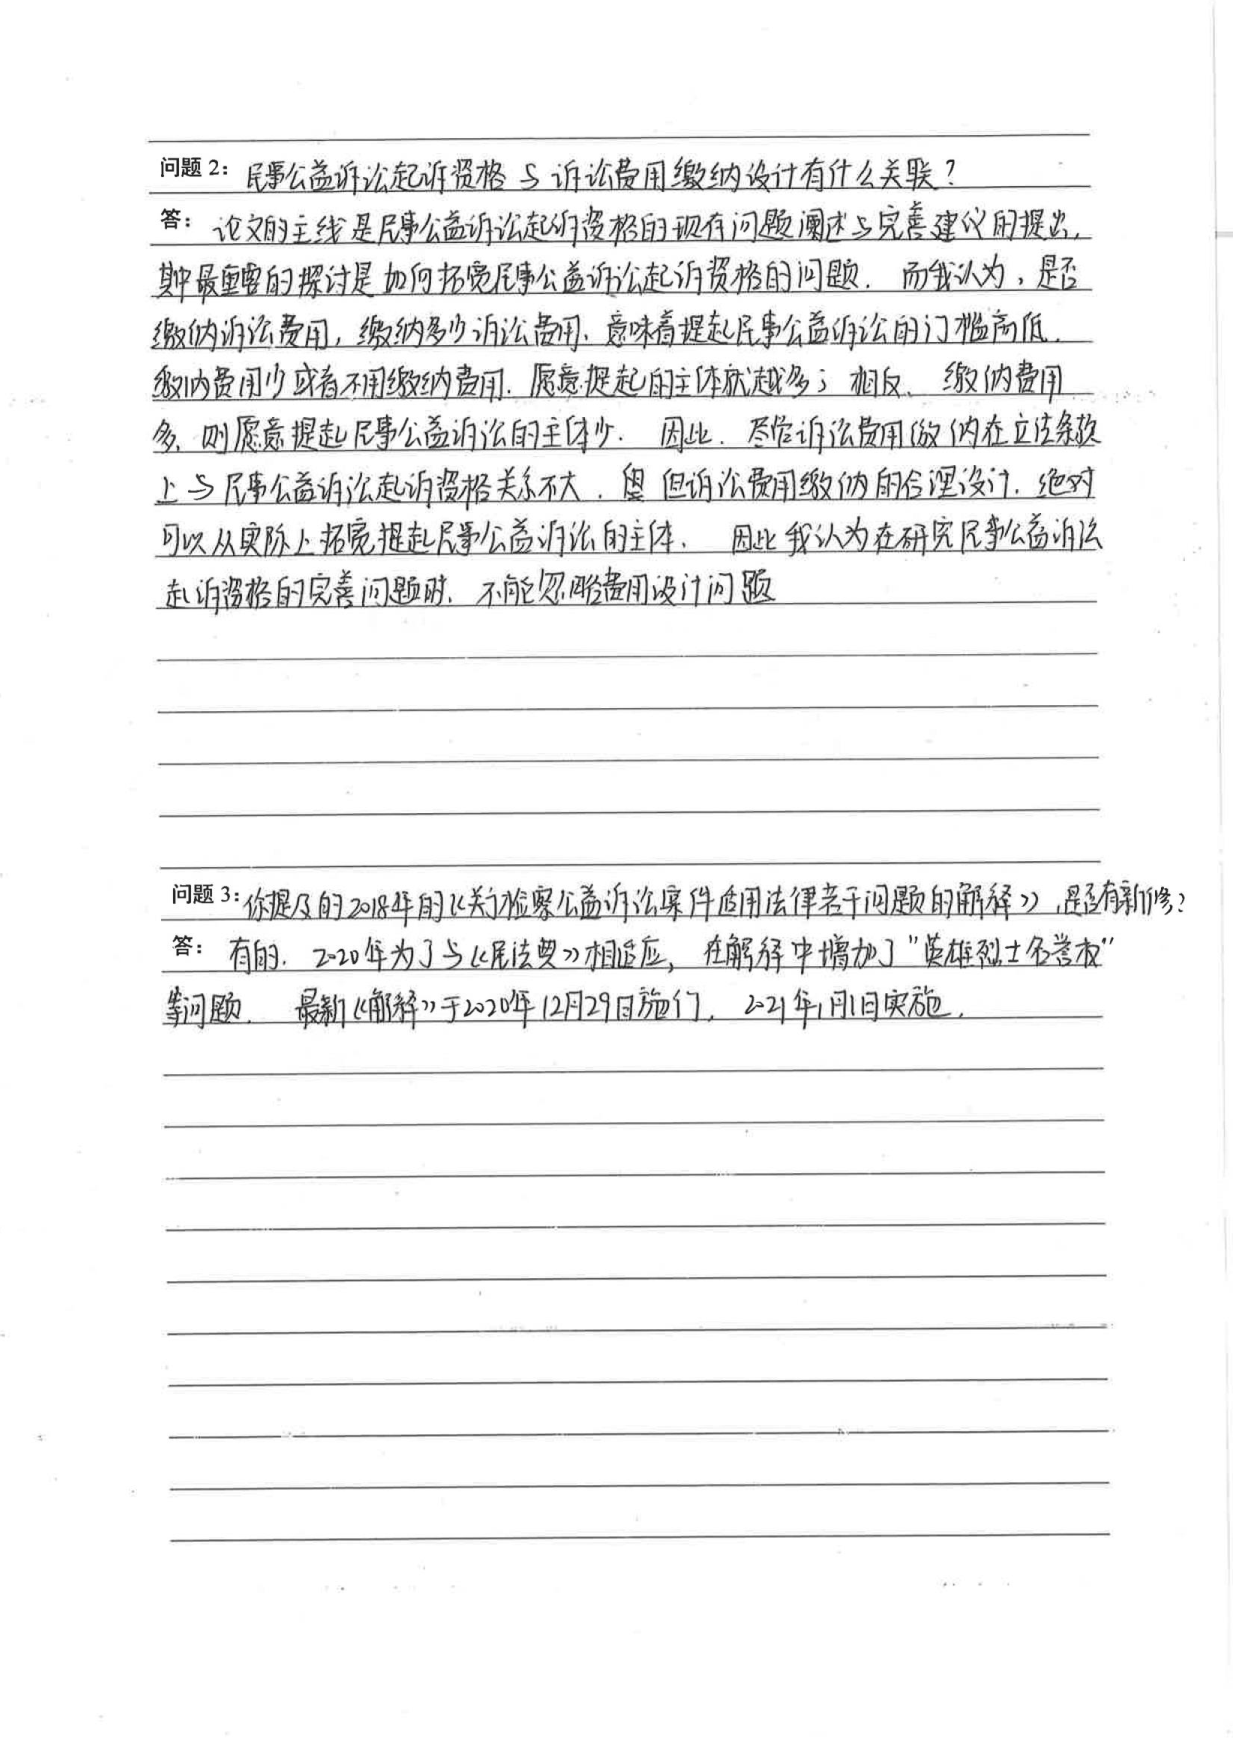 问题 2：民事公益诉讼起诉资格与诉讼费用缴纳设计有什么关联？
答：论文的主线是民事公益诉讼起诉资格的现存问题阐述与完善建议的提出，
其中最重要的探讨是如何拓宽民事公益诉讼起诉资格的问题. 而我认为，是否
缴纳诉讼费用，缴纳多少诉讼费用、意味着提起民事公益诉讼的门槛高低.
缴纳费用少或者不用缴纳费用. 愿意提起的主体就越多；相反、缴纳费用
多、则愿意提起民事公益诉讼的主体少. 因此. 尽管诉讼费用缴纳在立法条款
上与民事公益诉讼起诉资格关系不大. 但诉讼费用缴纳的合理设计. 绝对
可以从实际上拓宽提起民事公益诉讼的主体. 因此我认为在研究民事公益诉讼
起诉资格的完善问题时. 不能忽略费用设计问题
问题 3：你提及的2018年的《关于检察公益诉讼案件适用法律若干问题的解释》，是否有新修？
答：有的. 2020年为了与《民法典》相适应，在解释中增加了"英雄烈士名誉权"
等问题. 最新《解释》于2020年12月29日施行. 2021年1月1日实施.